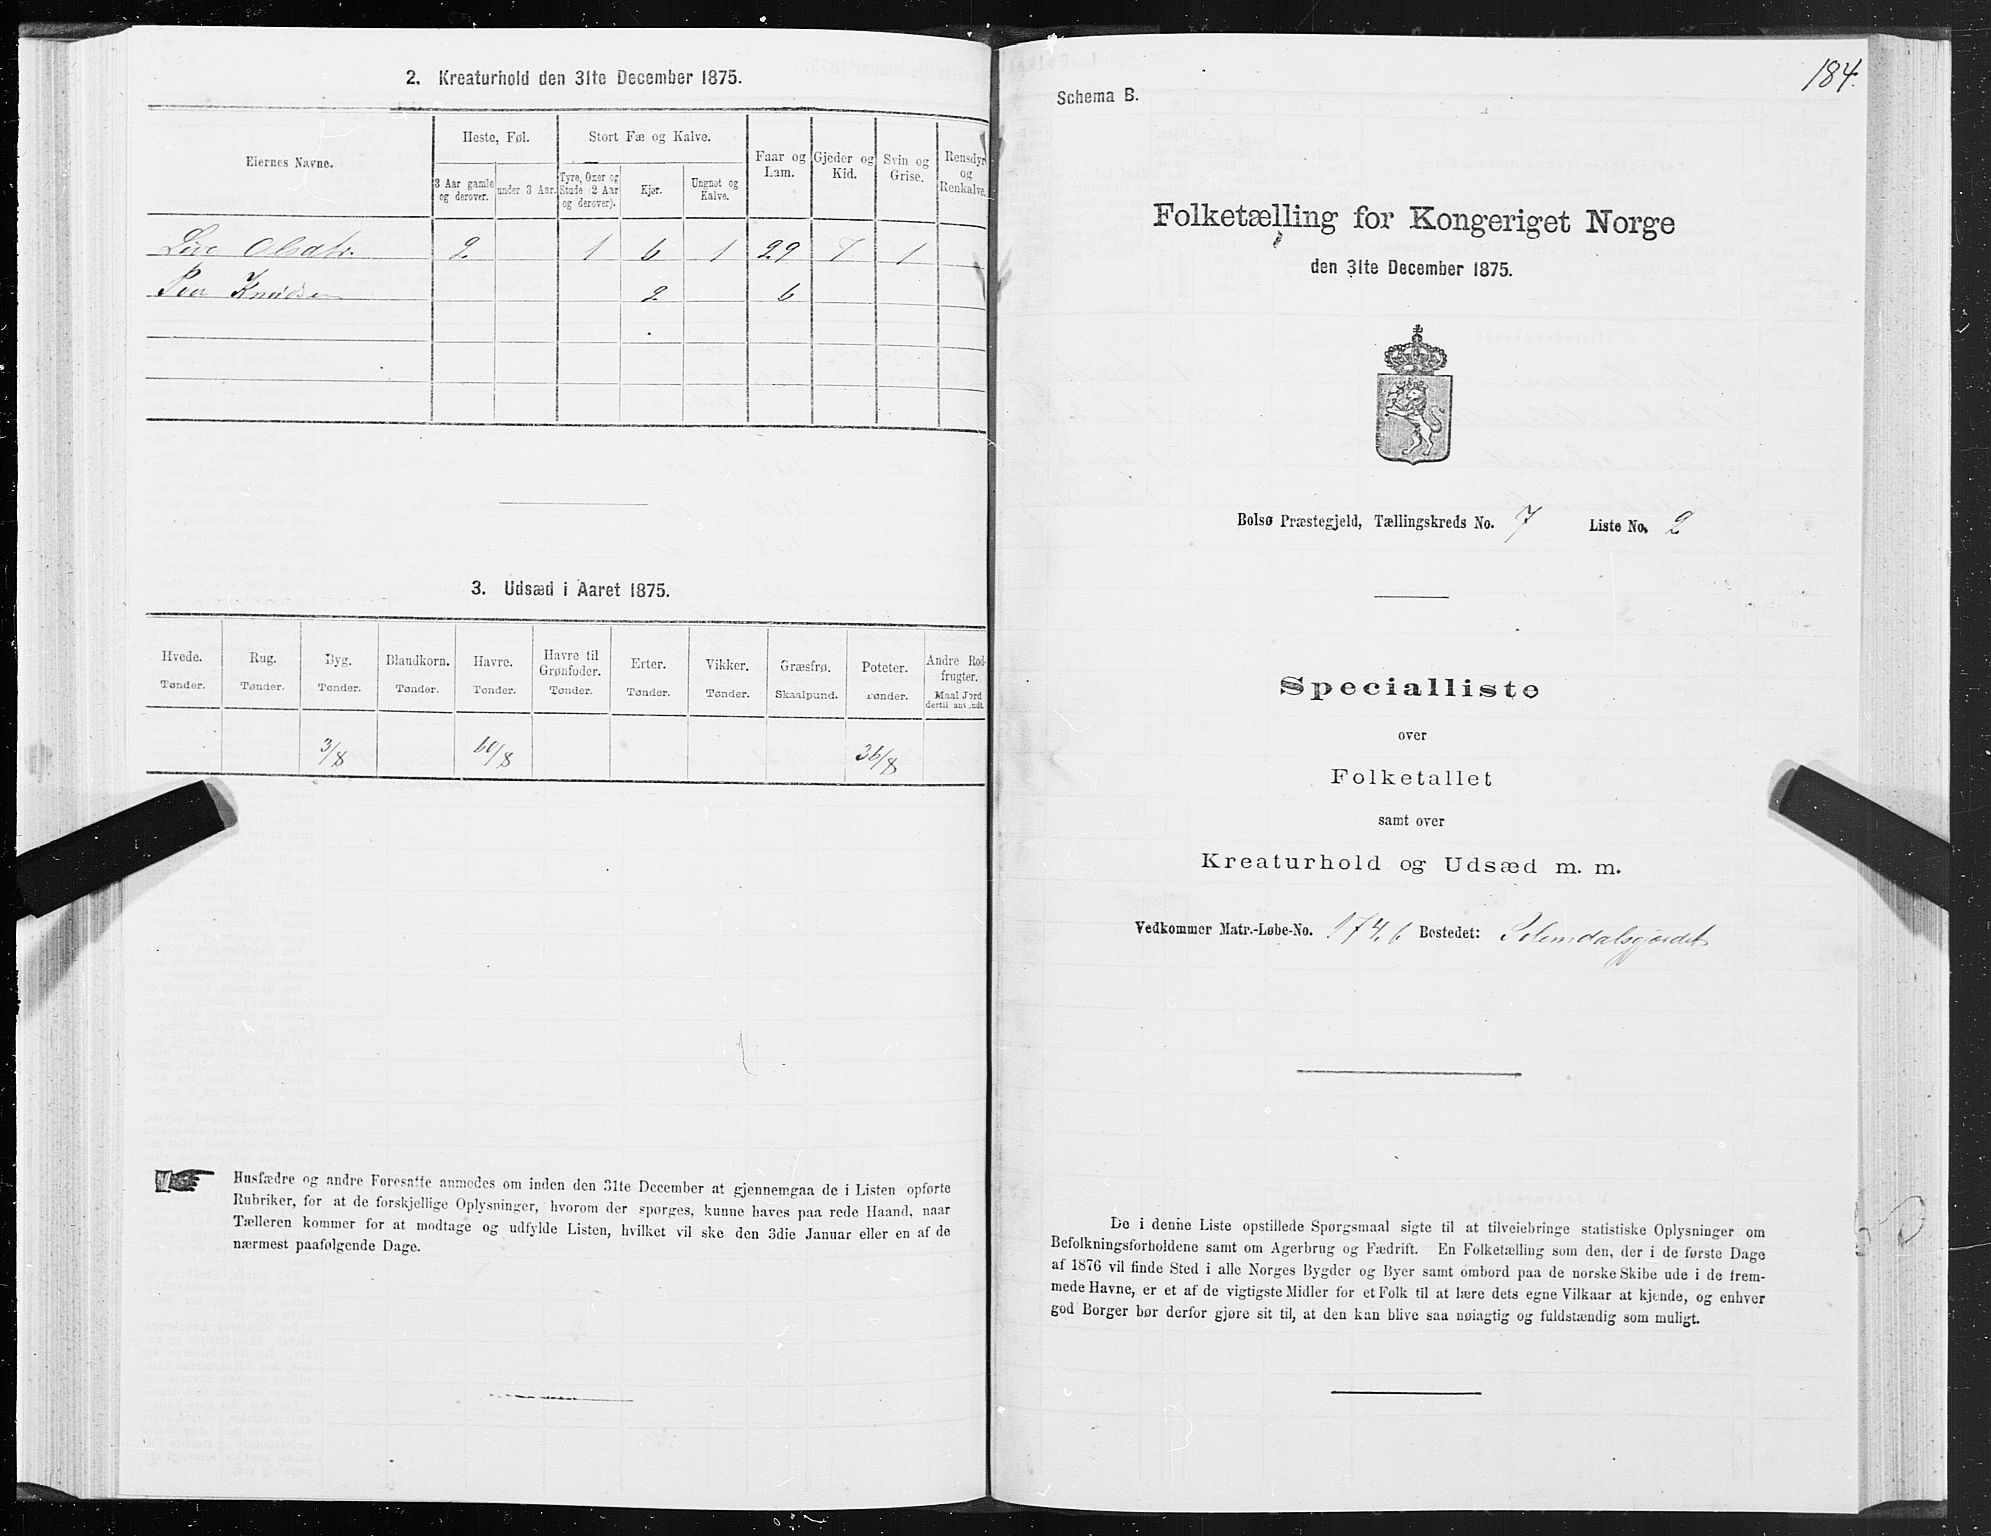 2. Kreaturhold den 31te December 1875.
Eiernes Navne.
Heste, Føl.
Stort Fæ og Kalve.
Faar og Lam.
Gjeder og Kid.
Svin og Grise.
Rensdyr og Renkalve.
3 Aar gamle og derover.
under 3 Aar.
Tyre, Oxer og Stude (2 Aar og derover).
Kjør.
Ungnøt og Kalve.
Live Olsdtr. 2 1 6 1 29 7 1
Peer Knudsen 2 6
3. Udsæd i Aaret 1875.
Hvede. Rug. Byg. Blandkorn. Havre. Havre til Grønfoder. Erter. Vikker. Græsfrø. Poteter. Andre Rodfrugter.
Tønder. Tønder. Tønder. Tønder. Tønder. Tønder. Tønder. Tønder. Skaalpund. Tønder. Maal Jord dertil anvendt.
3/8 60/8 36/8
Husfædre og andre Foresatte anmodes om inden den 31te December at gjennemgaa de i Listen opførte
Rubriker, for at de forskjellige Oplysninger, hvorom der spørges, kunne haves paa rede Haand, naar
Tælleren kommer for at modtage og udfylde Listen, hvilket vil ske den 3die Januar eller en af de
nærmest paafølgende Dage.
184.
Schema B.
Folketælling for Kongeriget Norge
den 31te December 1875.
Bolsø Præstegjeld, Tællingskreds No. 7 Liste No. 2
Specialliste
over
Folketallet
samt over
Kreaturhold og Udsæd m. m.
Vedkommer Matr.-Løbe-No. 174,6 Bostedet: Solemdalsgjærdet
De i denne Liste opstillede Spørgsmaal sigte til at tilveiebringe statistiske Oplysninger om
Befolkningsforholdene samt om Agerbrug og Fædrift. En Folketælling som den, der i de første Dage
af 1876 vil finde Sted i alle Norges Bygder og Byer samt ombord paa de norske Skibe ude i de frem-
mede Havne, er et af de vigtigste Midler for et Folk til at lære dets egne Vilkaar at kjende, og enhver
god Borger bør derfor gjøre sit til, at den kan blive saa nøiagtig og fuldstændig som muligt.